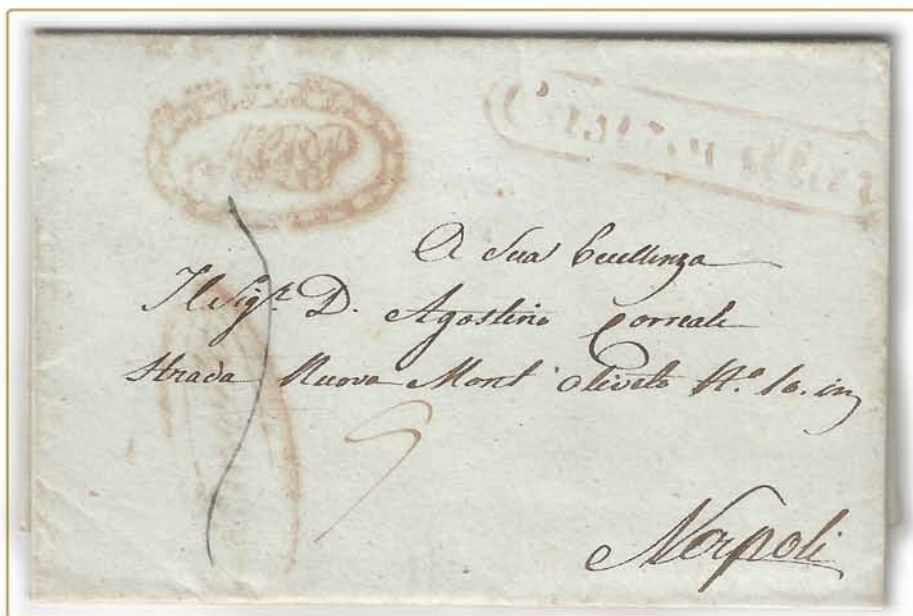 A Sua Eccellenza
Il Sigr. D. Agostino Correale
Strada Nuova Mont' Oliveto N.o 10. in
Napoli